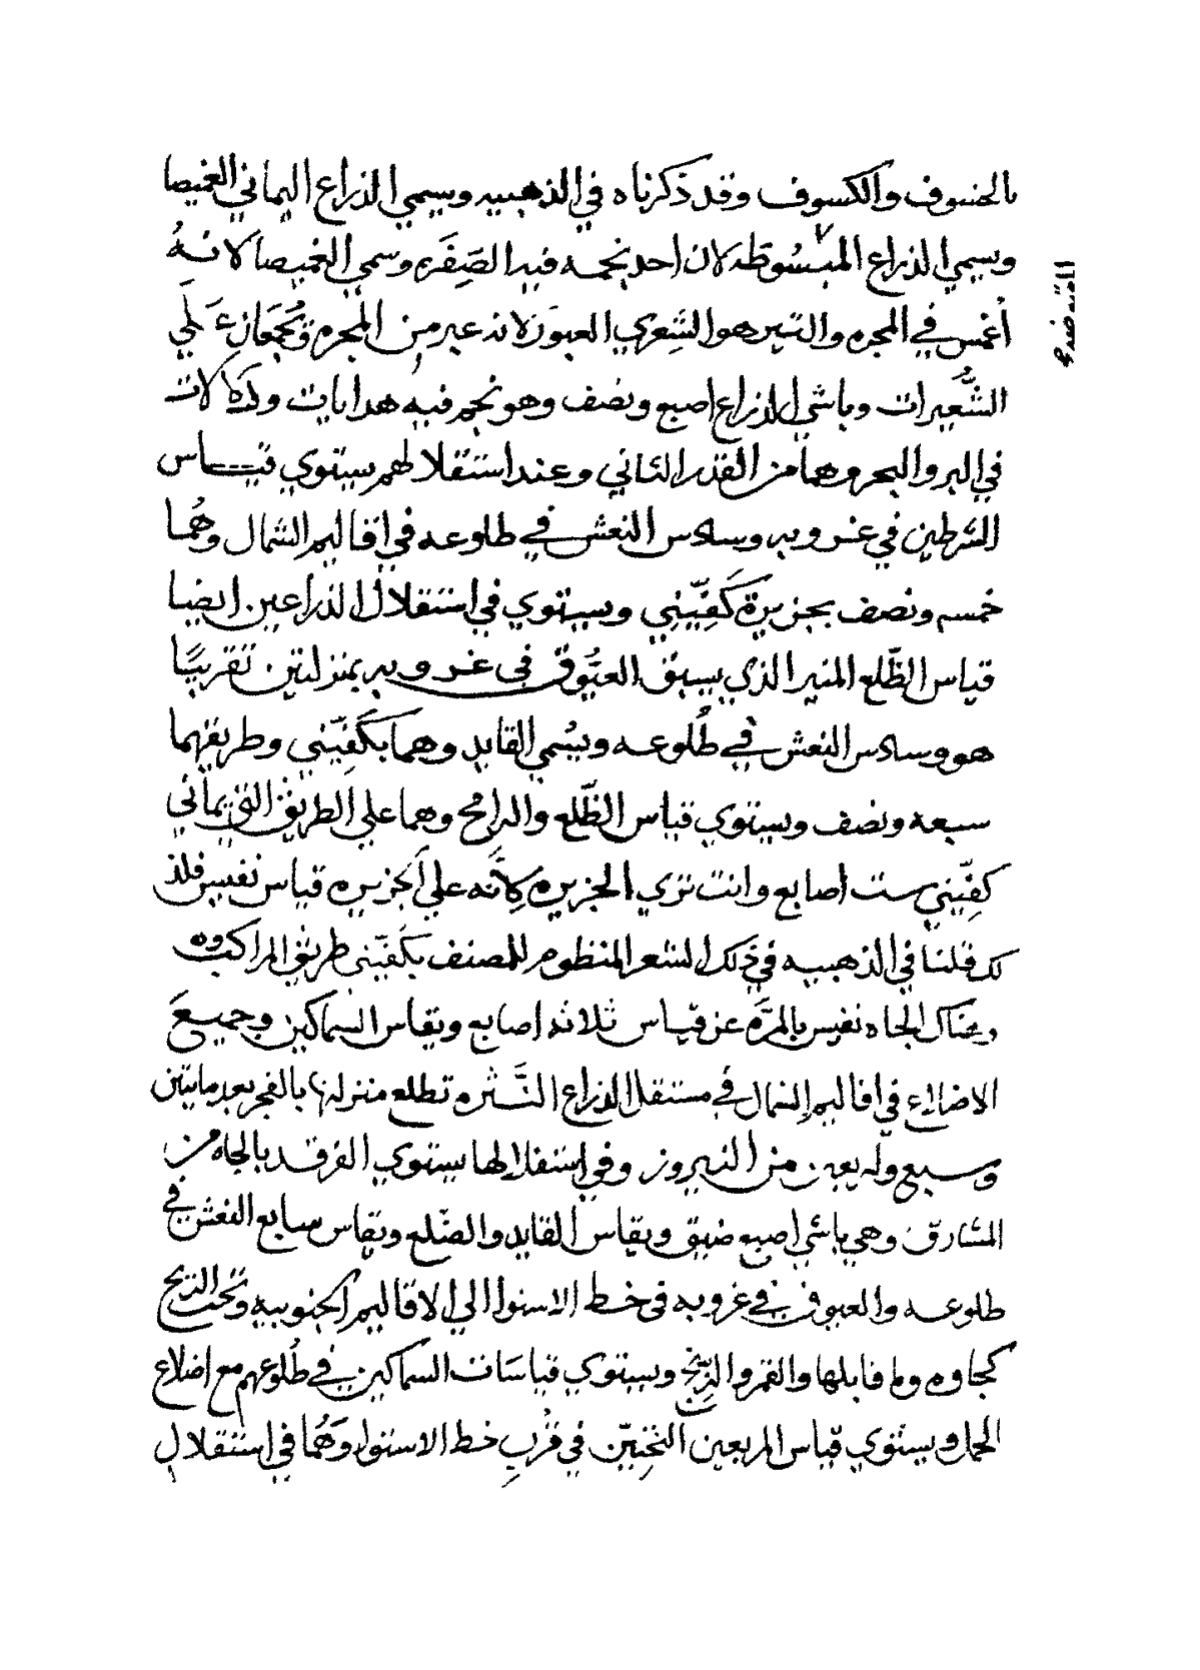 بالخسوف والكسوف وقد ذكرناه في الذهبيه ويسمي الذراع اليماني الغميصا
ويسمي الذراع المبسُوطه لان احد نجمـه فيه الصِفَره وسمي الغميصا لانـهُ
أغمس في المجره والنير هو الشِعري العبوَر لانه عبر من المجره ويُجمَعان عَـلَي
الشُّعيرات وباشي الذراع اصبع ونصف وهو نجم فيه هدايات ودلالات
في البر والبحر وهما من القدر الثاني وعند استقلالهم يستوي قيـــاس
الشرطين في غـروبه وسادس النعش في طلوعه في اقاليم الشمال وهُمـا
خمسه ونصف بجزيرة كَفِيّني ويستوي في استقلال الذراعين ايضا
قياس الظّلع المنير الذي يسبق العيُّوق في غـروبه بمنزلتين تقريبًا
هو وسادس النعش في طُلوعـه ويُسمي القايد وهما بكَفِيّني وطريقهما
سبعه ونصف ويستوي قياس الظّلع والرامح وهما علي الطريق التي بماَني
كفِيّني ست اصابع وانت تري الجزيره كأنّه علي الجزيره قياس نفيس فلذ
لك قلنا في الذهبيه في ذلك الشعر المنظوم للمصنف بكَفيّني طريق المراكب وه
وهناك الجاه نفيس بالمرَّه عن قياس ثلاثه اصابع ويقاس السماكين وجميـعَ
الاضلاع في اقاليم الشمال في مستقل الذراع النَّـثره تطلع منزلها بالفجر بعد مايتين
وسبع واربعين من النيروز وفي استقلالها يستوي الفرقد بالجاه من
المشارق وهي باشي اصبع ضيق ويقاس القايد والضّلع ويقاس سابع النعش في
طلوعـه والعيوق في غروبه في خط الاستوا الي الاقاليم الجنوبيه وتحت الريح
كجاوه وما قابلها والقمر والزنج ويستوي قياسَات السماكين في طُلوعهم مع اضلاع
الحمل ويستوي قياس المربعين النحنيّن في قرُبِ خط الاستوا وهُما في استقلال